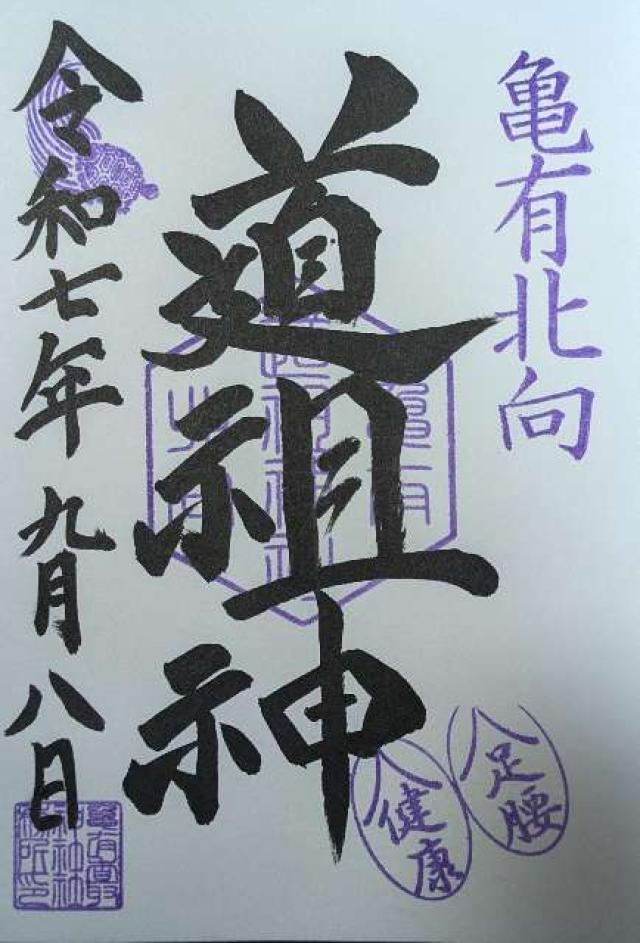 亀有北向
道祖神
令和七年九月八日
足腰
健康